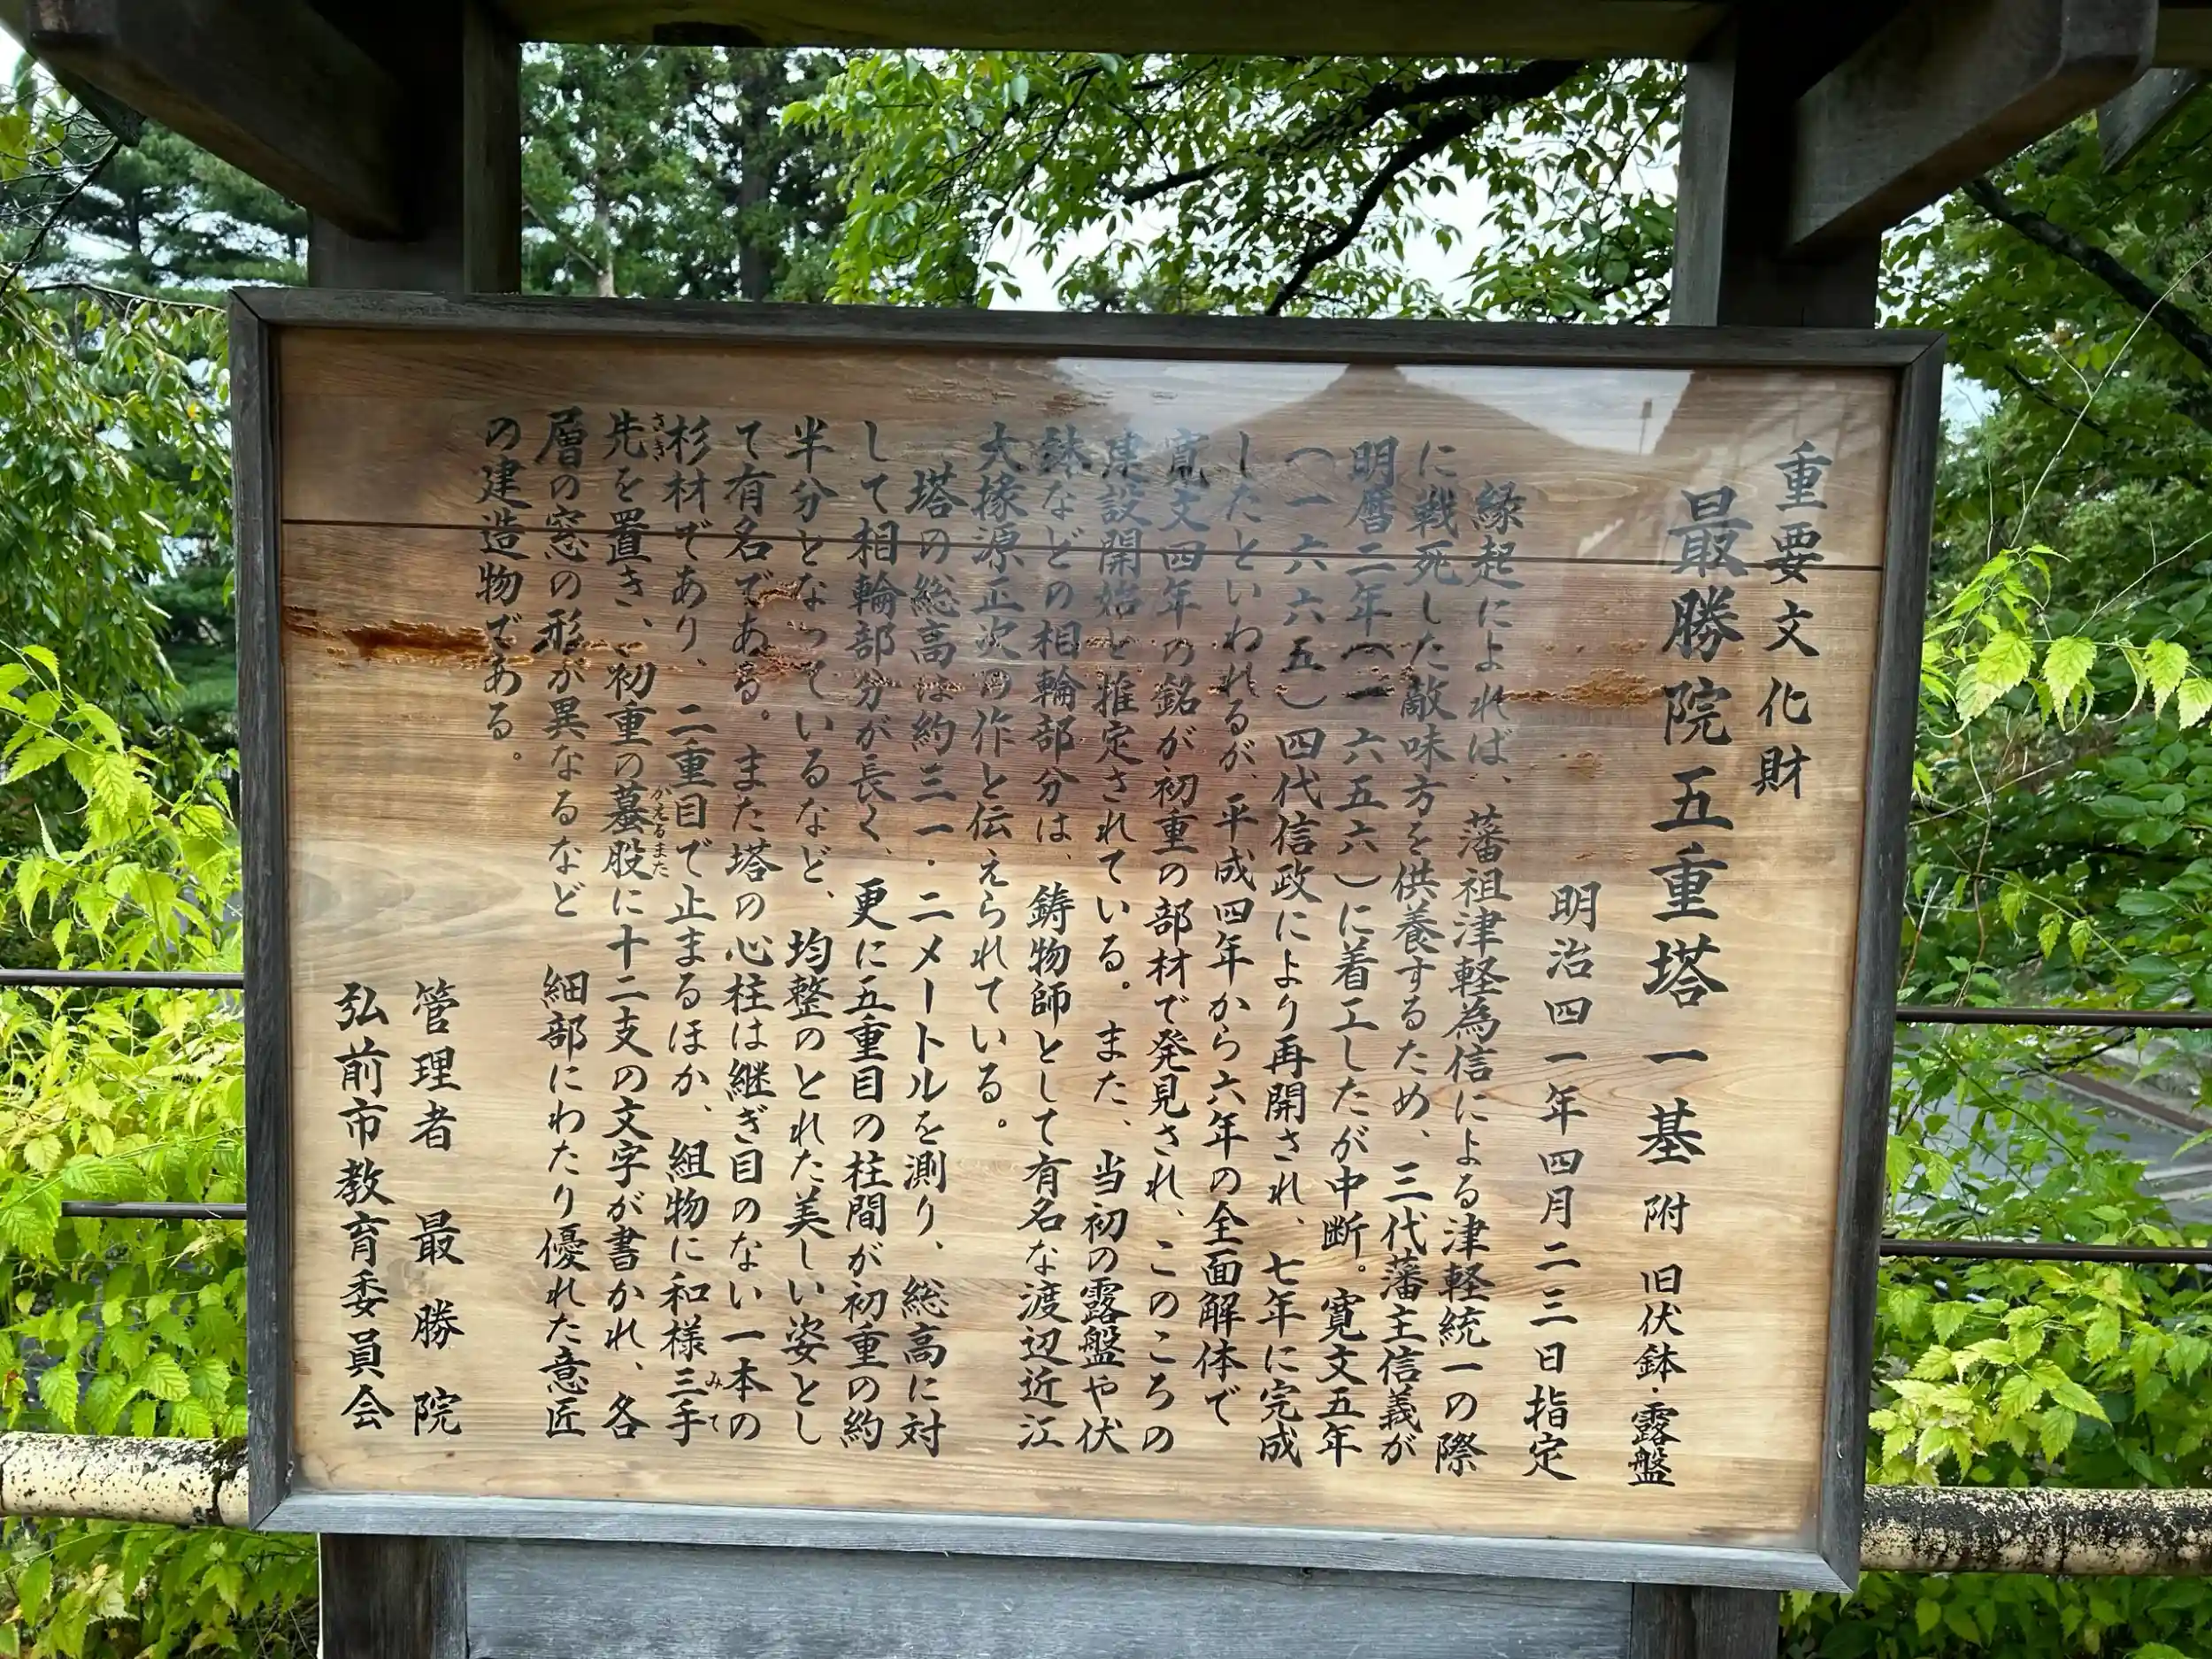 重要文化財
最勝院五重塔 一基 附 旧伏鉢・露盤
明治四一年四月二三日指定
縁起によれば、藩祖津軽為信による津軽統一の際
に戦死した敵味方を供養するため、三代藩主信義が
明暦二年(一六五六)に着工したが中断。寛文五年
(一六六五)四代信政により再開され、七年に完成
したといわれるが、平成四年から六年の全面解体で
寛文四年の銘が初重の部材で発見され、このころの
建設開始と推定されている。また、当初の露盤や伏
鉢などの相輪部分は、鋳物師として有名な渡辺近江
大掾源正次の作と伝えられている。
塔の総高は約三一・二メートルを測り、総高に対
して相輪部分が長く、更に五重目の柱間が初重の約
半分となっているなど、均整のとれた美しい姿とし
て有名である。また塔の心柱は継ぎ目のない一本の
杉材であり、二重目で止まるほか、組物に和様三手
先を置き、初重の蟇股に十二支の文字が書かれ、各
層の窓の形が異なるなど 細部にわたり優れた意匠
の建造物である。
管理者 最勝院
弘前市教育委員会